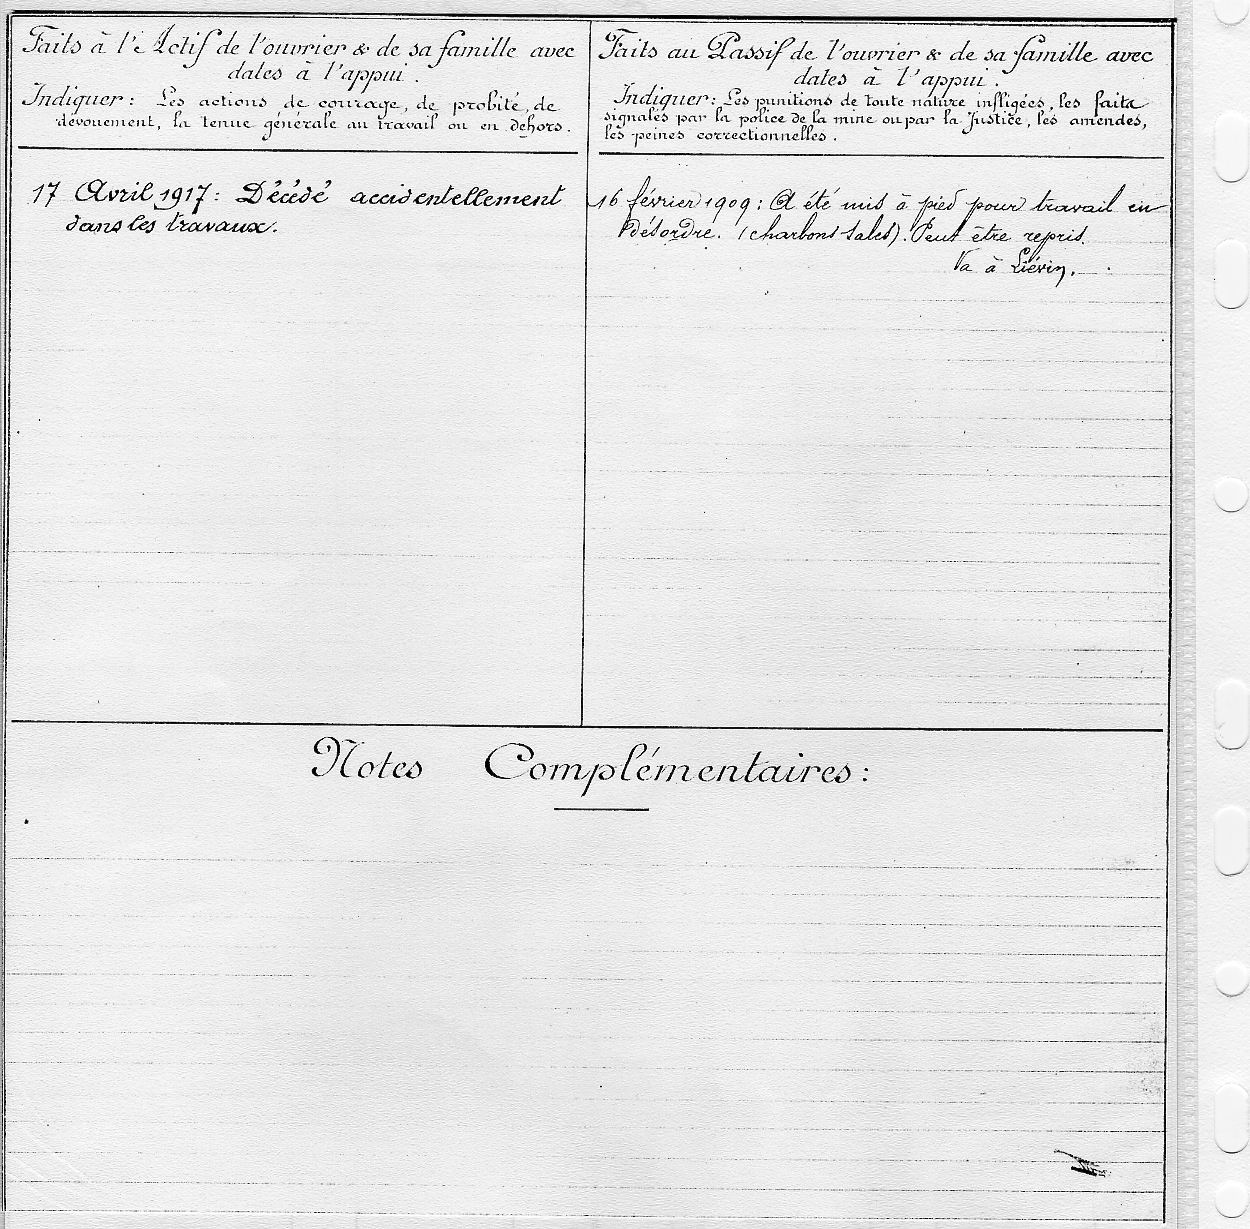 Faits à l'Actif de l'ouvrier & de sa famille avec
dates à l'appui.
Indiquer : Les actions de courage, de probité, de
dévouement, la tenue générale au travail ou en dehors.
17 Avril 1917 : Décédé accidentellement
dans les travaux.
Faits au Passif de l'ouvrier & de sa famille avec
dates à l'appui.
Indiquer : Les punitions de toute nature infligées, les faits
signalés par la police de la mine ou par la Justice, les amendes,
les peines correctionnelles.
16 février 1909 : A été mis à pied pour travail en
désordre. (charbons sales). Peut être repris.
Va à Liévin.
Notes Complémentaires :